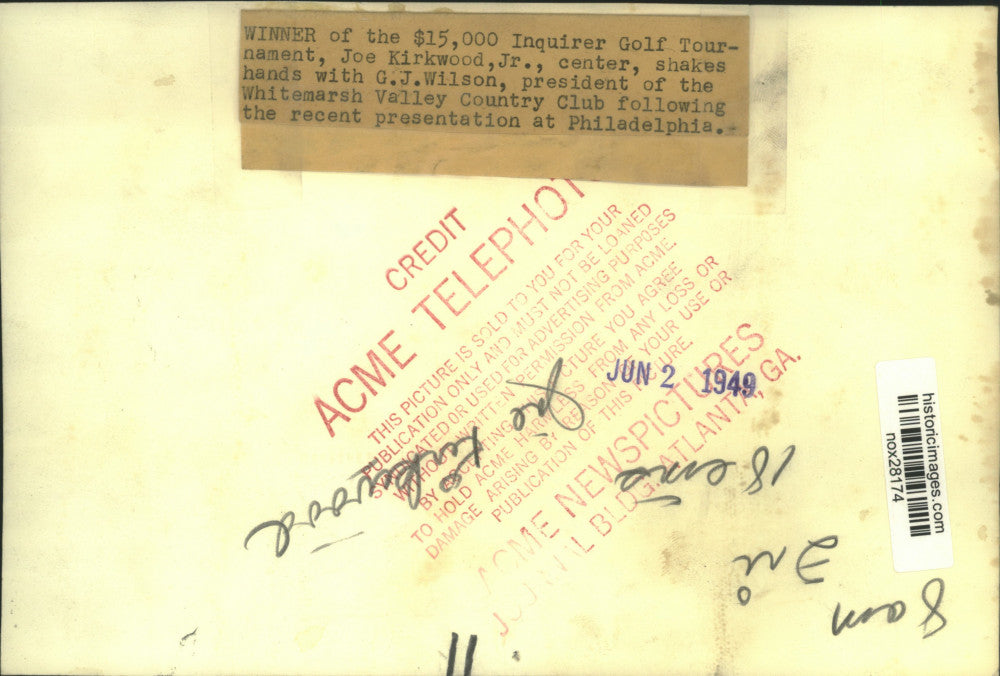 WINNER of the $15,000 Inquirer Golf Tour-
nament, Joe Kirkwood,Jr., center, shakes
hands with G.J.Wilson, president of the
Whitemarsh Valley Country Club following
the recent presentation at Philadelphia.
CREDIT
ACME TELEPHOT
THIS PICTURE IS SOLD TO YOU FOR YOUR
PUBLICATION ONLY AND MUST NOT BE LOANED
SYNDICATED OR USED FOR ADVERTISING PURPOSES
WITHOUT WRITTEN PERMISSION FROM ACME.
BY PICTURE YOU AGREE
TO HOLD ACME HARMLESS FROM ANY LOSS OR
DAMAGE ARISING BY REASON YOUR USE OR
PUBLICATION OF THIS PICTURE.
ACME NEWSPICTURES
BLDG. ATLANTA, GA.
JUN 2 1949
Joe Kirkwood
18 ems
Fri
8 am
11
historicimages.com
nox28174